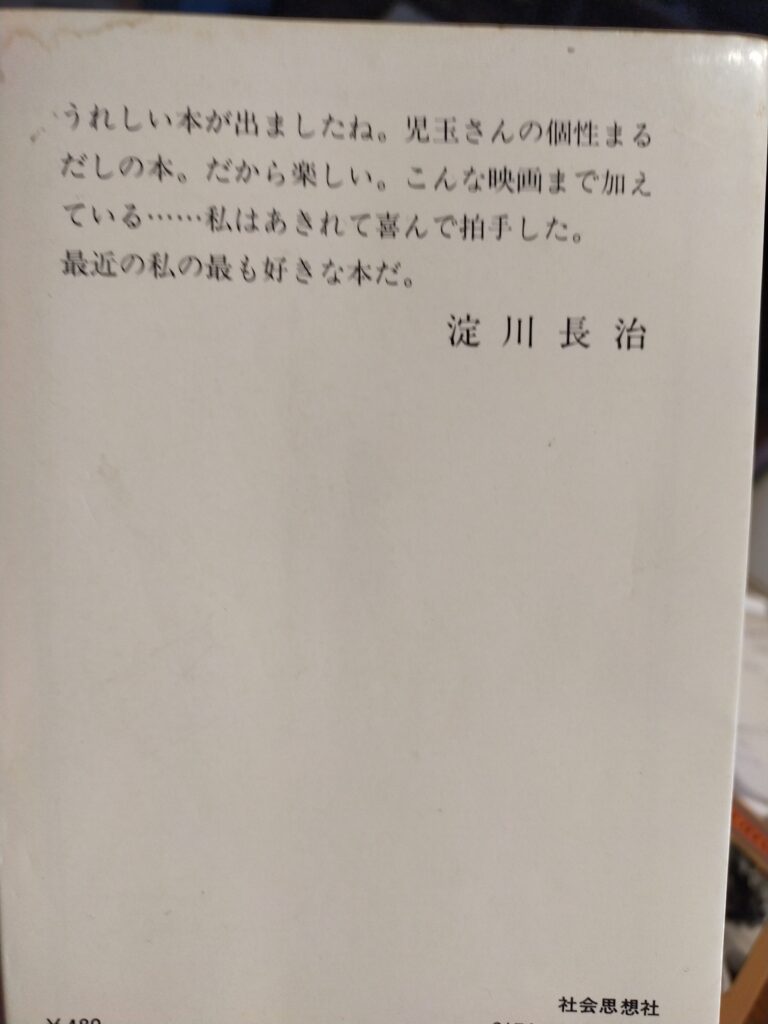 うれしい本が出ましたね。児玉さんの個性まる
だしの本。だから楽しい。こんな映画まで加え
ている……私はあきれて喜んで拍手した。
最近の私の最も好きな本だ。
淀川長治
社会思想社